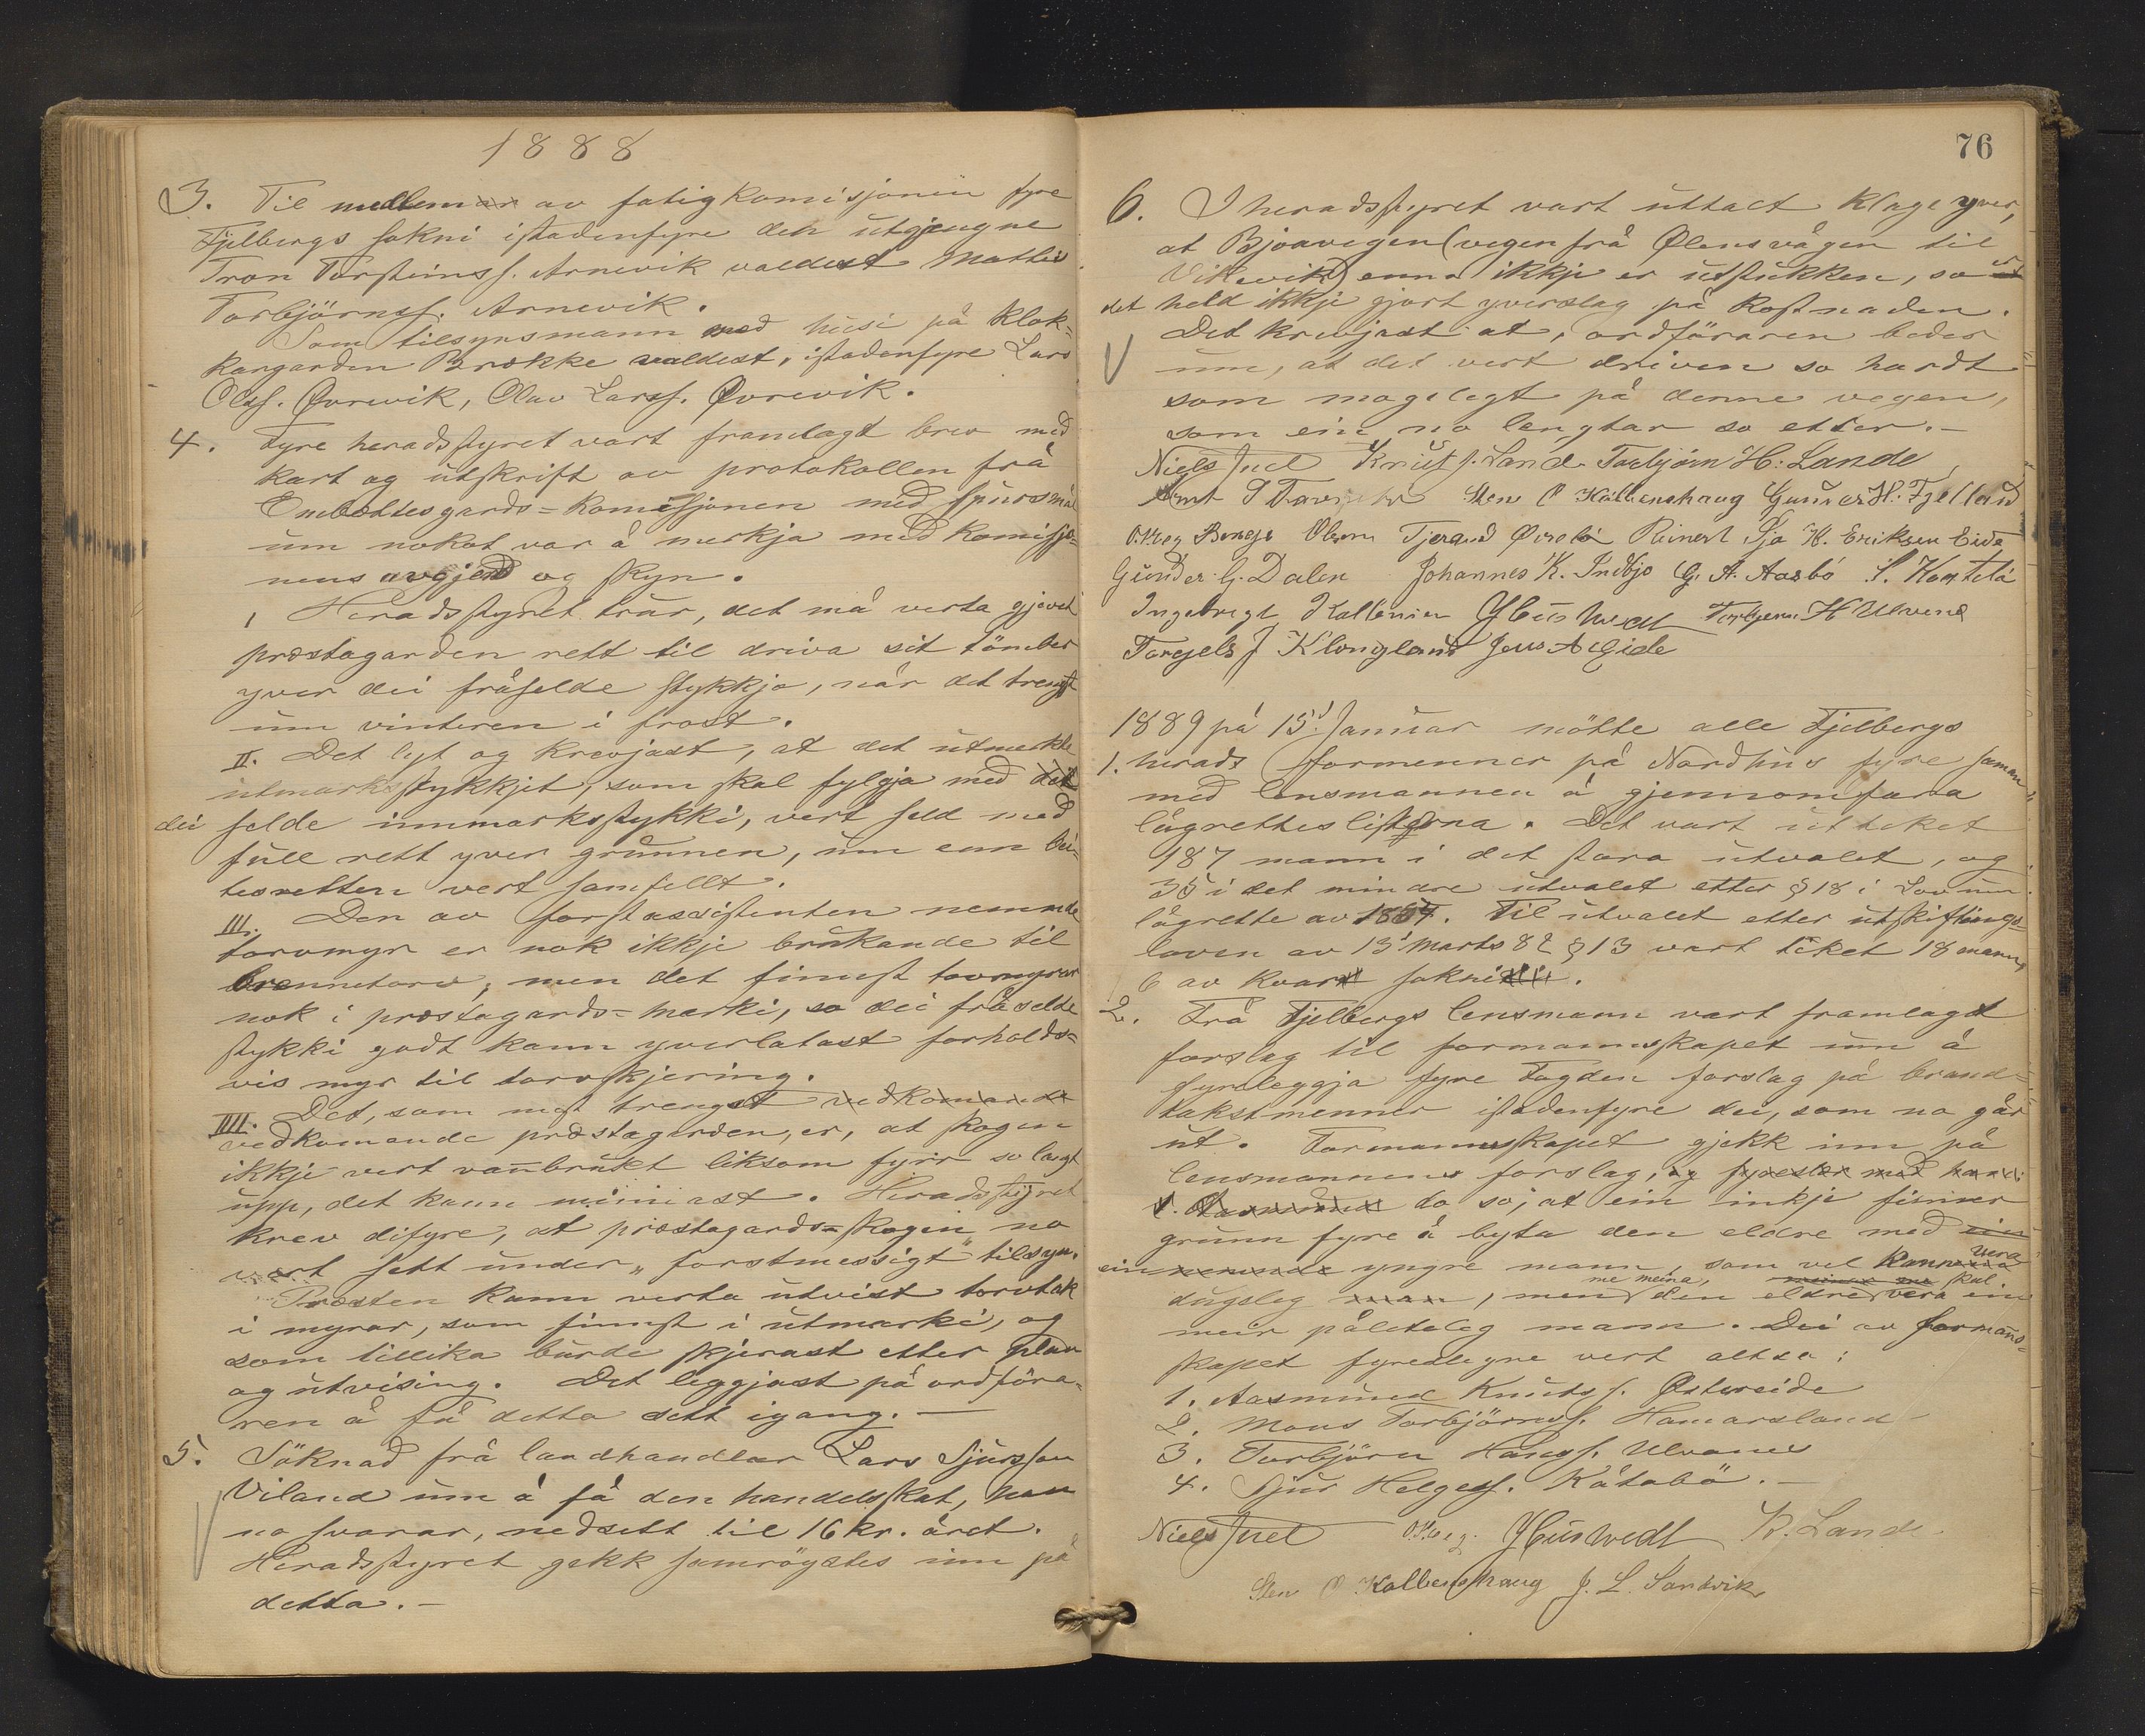 1888
3. Til medlem av fatigkomisjonen fyre
Fjelbergs sokni istadenfyre den utgjengne
Tron Torsteinss. Arnevik valdest Mathis
Torbjörnss. Arnevik.
Som tilsynsmann med husi på Klok-
kargarden Brække valdest, istadenfyre Lars
Olss. Øvrevik, Olav Larss. Øvrevik.
4. Fyre heradsstyret vart framlagt brev med
kart og utskrift av protokollen frå
Embættesgards-komissjonen med spursmål
um nokot var å merkja med komissjo-
nens avgjerd og skyn.
1 Heradsstyret trur, det må verta gjevet
præstagarden rett til driva sit tömber
yver dei fråselde stykkjo, når det trengst
um vinteren i frost.
II. Det lyt og krevjast, at det utmerkte
utmarksstykkjet, som skal fylgja med
dei selde innmarksstykki, vert seld med
full rett yver grunnen, um enn bei-
tesretten vert samfellt.
III. Den av forstassistenten nemnde
torvmyr er nok ikkje brukande til
brennetorv, men det finnst torvmyrar
nok i præstagards-marki, so dei fråselde
stykki godt kann yverlatast forholds-
vis myr til torvskjering.
IIII. Det, som mest trengst vedkomande
vedkomande præstagarden, er, at skogen
ikkje vert vanbrukt liksom fyrr so langt
upp, det kann minnast. Heradsstyret
krev difyre, at præstagards-skogen no
vert sett under „forstmessigt" tilsyn.
Præsten kann verta utvist torvtak
i myrar, som finnst i utmarki, og
som tillika burde skjerast etter plan
og utvising. Det leggjast på ordföra-
ren å få detta sett igang. —
5. Söknad frå landhandlar Lars Sjursson
Viland um å få den handelsskat, han
no svarar, nedsett til 16 kr. året.
Heradsstyret gekk samröystes inn på
detta. —
76
6. I heradsstyret vart uttalt klage yver,
at Bjoavegen (vegen frå Ølensvågen til
Vikevik) enno ikkje er utstukken, so er
det held ikkje gjort yverslag på kostnaden.
Det krevjast at, ordföraren beder
um, at det vert driven so hardt
som mogelegt på denne vegen,
som ein no lengtar so etter. —
Niels Juel Knut J. Land. Torbjörn H. Lande
Sten O Kallenshaug Gunnar H. Fjelland
Olsen Tjerand Reinert Sjo K. Eriksen Eide
Gunder G. Dalen Johannes K. Indbjo G. A. Aasbö
Ingebrigt J Huswedt Torbjørn H Ulvenes
Torgels J Klongland Jens A Eide
1889 på 15d Januar mötte alle Fjelbergs
1. herads formenner på Nordhus fyre saman
med lensmannen å gjennomfara
lågrettes listorna. Det vart ut teket
187 mann i det stora utvalet, og
35 i det mindre utvalet etter § 18 i Lov um
lågrette av 1887. Til utvalet etter utskiftings-
loven av 13' Marts 82 § 13 vart teket 18 mann,
6 av kvar sokni.
2. Frå Fjelbergs lensmann vart framlagt
forslag til formannskapet um å
fyreleggja fyre Fogden forslag på brand-
takstmenner istadenfyre dei, som no går
ut. Formannskapet gjekk inn på
lensmannens forslag, og
do so, at ein inkje finner
grunn fyre å byta den eldre med
ein yngre mann, som vel kann vera
dugeleg, men me meina, den eldre skal vera ein
meir påliteleg mann. Dei av formans-
skapet fyreslegne vert altso:
1. Aasmund Knuts s. Østereide
2. Mons Torbjörnss. Hamarsland
3. Torbjörn Hanss. Ulvenes
4. Sjur Helgess. Kåtabö. —
Niels Juel J Huswedt K. Lande
Sten O Kallenshaug J. L. Sandvik